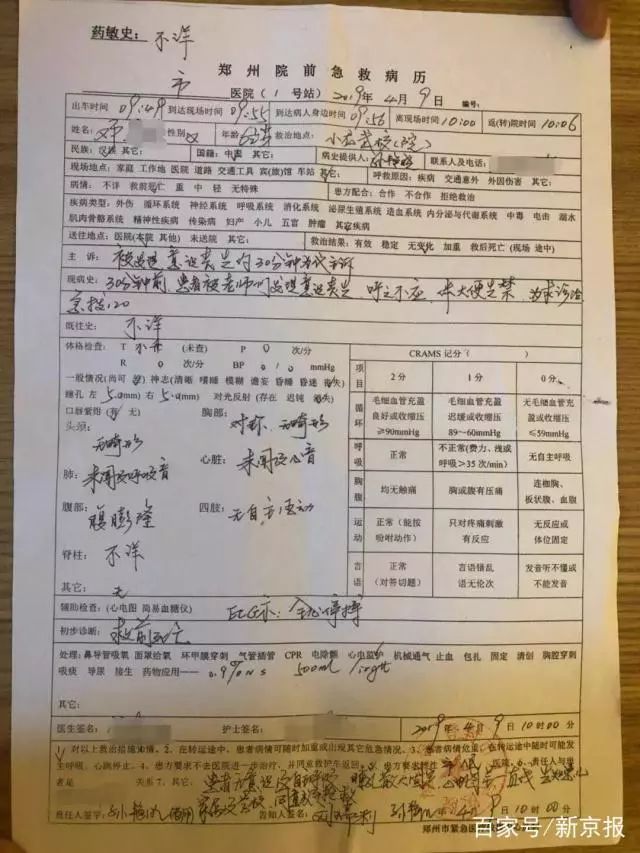 药敏史：不详
郑州院前急救病历
市 医院（1号站）2019年4月9日 编号：
出车时间 09:49 到达现场时间 09:55 到达病人身边时间 09:56 离现场时间 10:00 返(转)院时间 10:06
姓名 性别 女 年龄 救治地点：小龙武校(院)
民族： 国籍：中 其它： 病史提供人 联系人及电话：
现场地点：家庭 工作地 医院 道路 交通工具 宾(旅)馆 车站 其它： 呼救原因：疾病 交通意外 外因伤害 其它：
病情：不详 救前死亡 重 中 轻 无特殊 患方配合：合作 不合作 拒绝救治
疾病类型：外伤 循环系统 神经系统 呼吸系统 消化系统 泌尿生殖系统 造血系统 内分泌与代谢系统 中毒 电击 溺水
肌肉骨骼系统 精神性疾病 传染病 妇产 小儿 五官 肿瘤 其它疾病
送往地点：医院(本院 其他) 未送院 其它： 救治结果：有效 稳定 无变化 加重 救后死亡(现场 途中)
主诉：被发现意识丧失约30分钟
现病史：30分钟前，患者被老师发现意识丧失，呼之不应，伴大便失禁，为求诊治
急拨120
既往史：不详
体格检查：T (未查) P 0 次/分
R 0 次/分 BP 0/0 mmHg
一般情况(尚可 差) 神志(清晰 嗜睡 模糊 谵妄 昏睡 昏迷 丧失)
瞳孔 左 5.0mm) 右 5.0mm) 对光反射(存在 迟钝 消失)
口唇紫绀(有 无) 胸部：对称，无畸形
头颈：无畸形
肺：未闻及呼吸音 心脏：未闻及心音
腹部：腹膨隆 四肢：无自主活动
脊柱：不详
其它：无
CRAMS记分( )
项目 2分 1分 0分
循环 毛细血管充盈良好或收缩压≥90mmHg 毛细血管充盈迟缓或收缩压89~60mmHg 无毛细血管充盈或收缩压≤59mmHg
呼吸 正常 不正常(费力、浅或呼吸>35次/min) 无自主呼吸
胸腹 均无触痛 胸或腹有压痛 连枷胸、板状腹、血腹
运动 正常(能按吩咐动作) 只对疼痛刺激有反应 无反应或体位固定
言语 正常(对答切题) 言语错乱语无伦次 发音听不懂或不能发音
辅助检查：(心电图 简易血糖仪) ECG示：全心停搏
初步诊断：救前死亡
处理：鼻导管吸氧 面罩给氧 环甲膜穿刺 气管插管 CPR 电除颤 心电监护 机械通气 止血 包扎 固定 清创 胸腔穿刺
吸痰 导尿 接生 药物应用—— 0.9%NS 500ml
其它：
医生签名： 护士签名： 2019年4月9日10时00分
1、对以上救治措施知情。2、在转运途中，患者病情可随时加重或出现其它危急情况。3、患者病情危重，在转运途中随时可能发
生呼吸、心跳停止。4、患方要求不去医院进一步治疗，并同意救护车返回。
关系7、
责任人签字： 告知人签名： 4月9日10时00分
郑州市紧急医
百家号/新京报